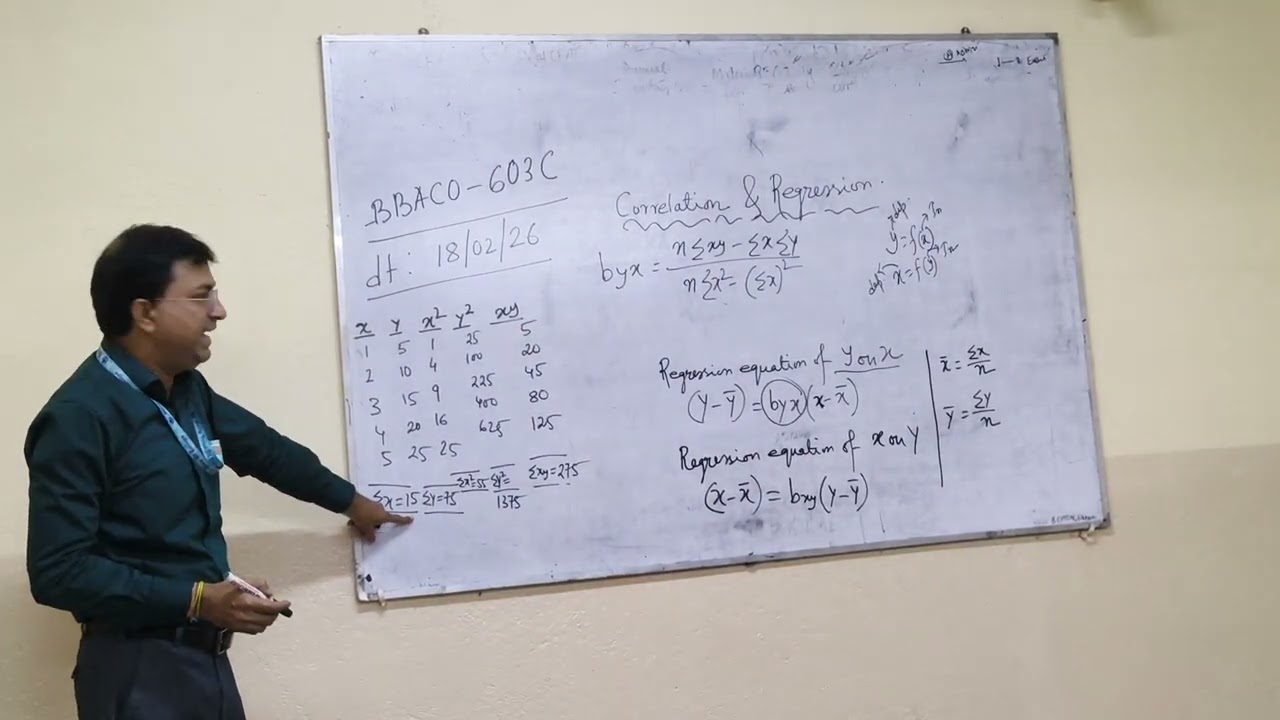 BBACO-603C
dt: 18/02/26
x y x² y² xy
1 5 1 25 5
2 10 4 100 20
3 15 9 225 45
4 20 16 400 80
5 25 25 625 125
Σx=15 Σy=75 Σx²=55 Σy²=1375 Σxy=275
Correlation & Regression.
byx = nΣxy - ΣxΣy / nΣx² - (Σx)²
y=f(x)
x=f(y)
Regression equation of y on x
(y-ȳ) = byx (x-x̄)
Regression equation of x on y
(x-x̄) = bxy (y-ȳ)
x̄ = Σx/n
ȳ = Σy/n